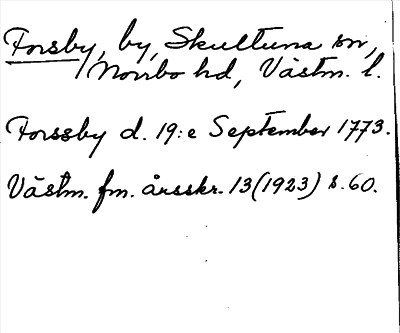 Forsby, by, Skultuna sn,
Norrbo hd, Västm. l.
Forssby d. 19:e September 1773.
Västm. fm. årsskr. 13 (1923) s. 60.